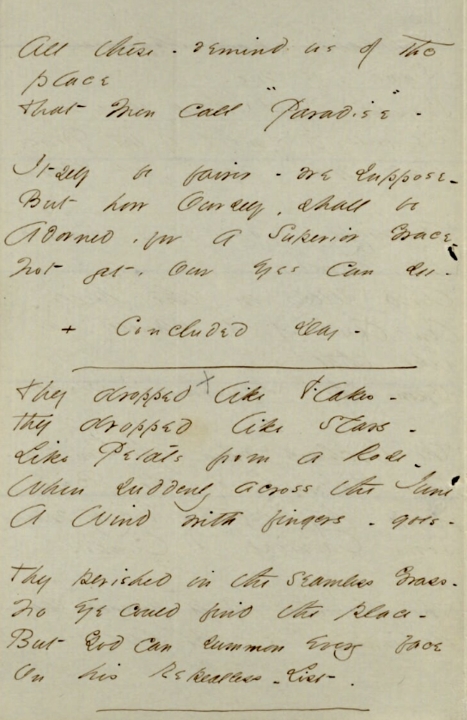 All these - remind us of the
place
that Men call "Paradise" -
Itself be fairer - we suppose -
But how Ourself, shall be
Adorned, for a Superior Grace -
Not yet, our eyes can see -
+ Concluded Day -
They dropped like Flakes -
They dropped like Stars -
Like Petals from a Rose -
When suddenly across the June
A Wind with fingers - goes -
They perished in the seamless Grass -
No eye could find the place -
But God can summon every face
On his Repealless - List -